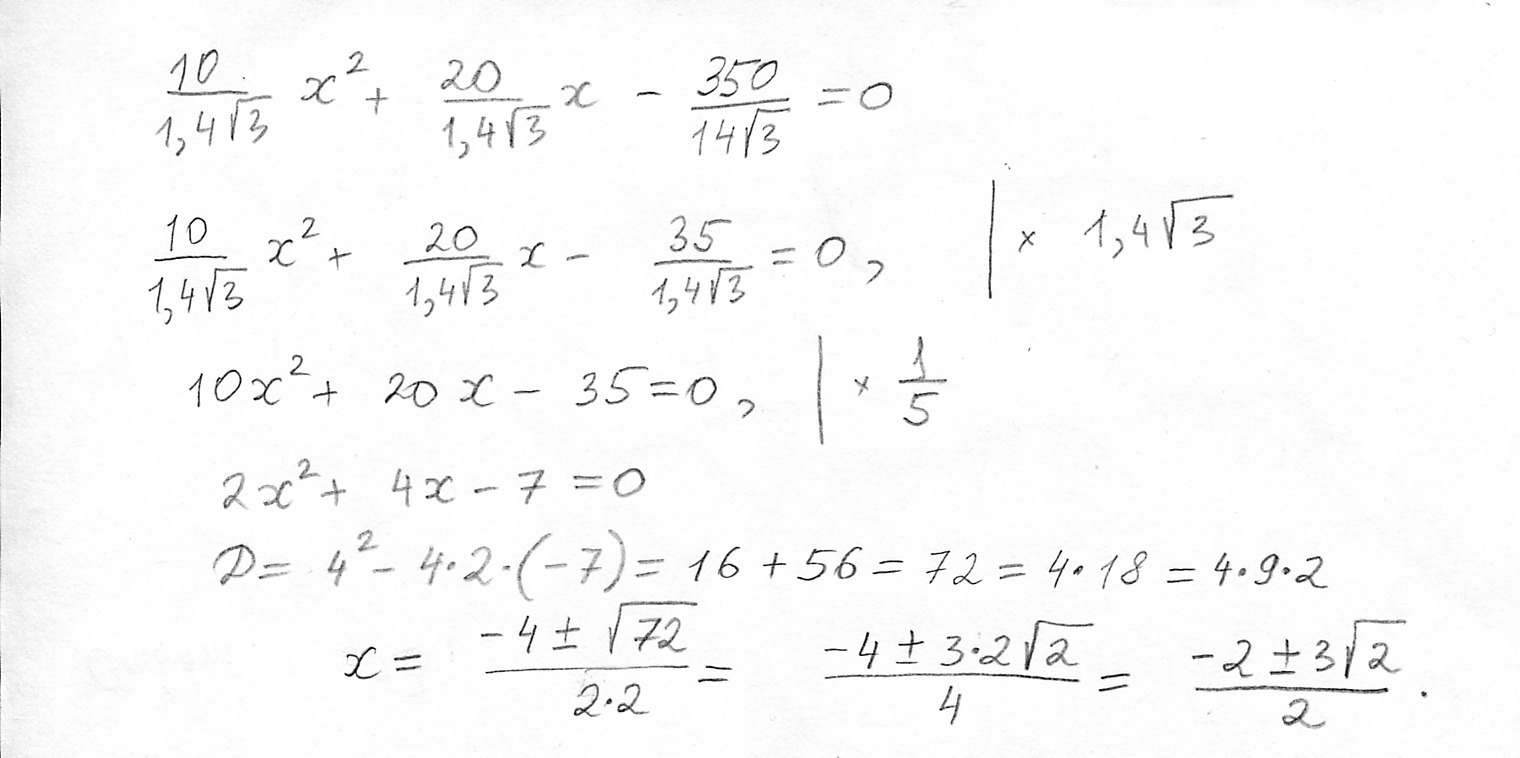 10/(1,4√3) x² + 20/(1,4√3) x − 350/(14√3) = 0
10/(1,4√3) x² + 20/(1,4√3) x − 35/(1,4√3) = 0, | × 1,4√3
10x² + 20x − 35 = 0, | × 1/5
2x² + 4x − 7 = 0
D = 4² − 4·2·(−7) = 16 + 56 = 72 = 4·18 = 4·9·2
x = (−4 ± √72)/(2·2) = (−4 ± 3·2√2)/4 = (−2 ± 3√2)/2.